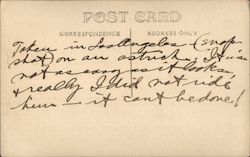 POST CARD
CORRESPONDENCE ADDRESS ONLY
Taken in Los Angeles (snap
shot) on an ostrich. It is
not as easy as it looks,
& really I did not ride
him — it cant be done!